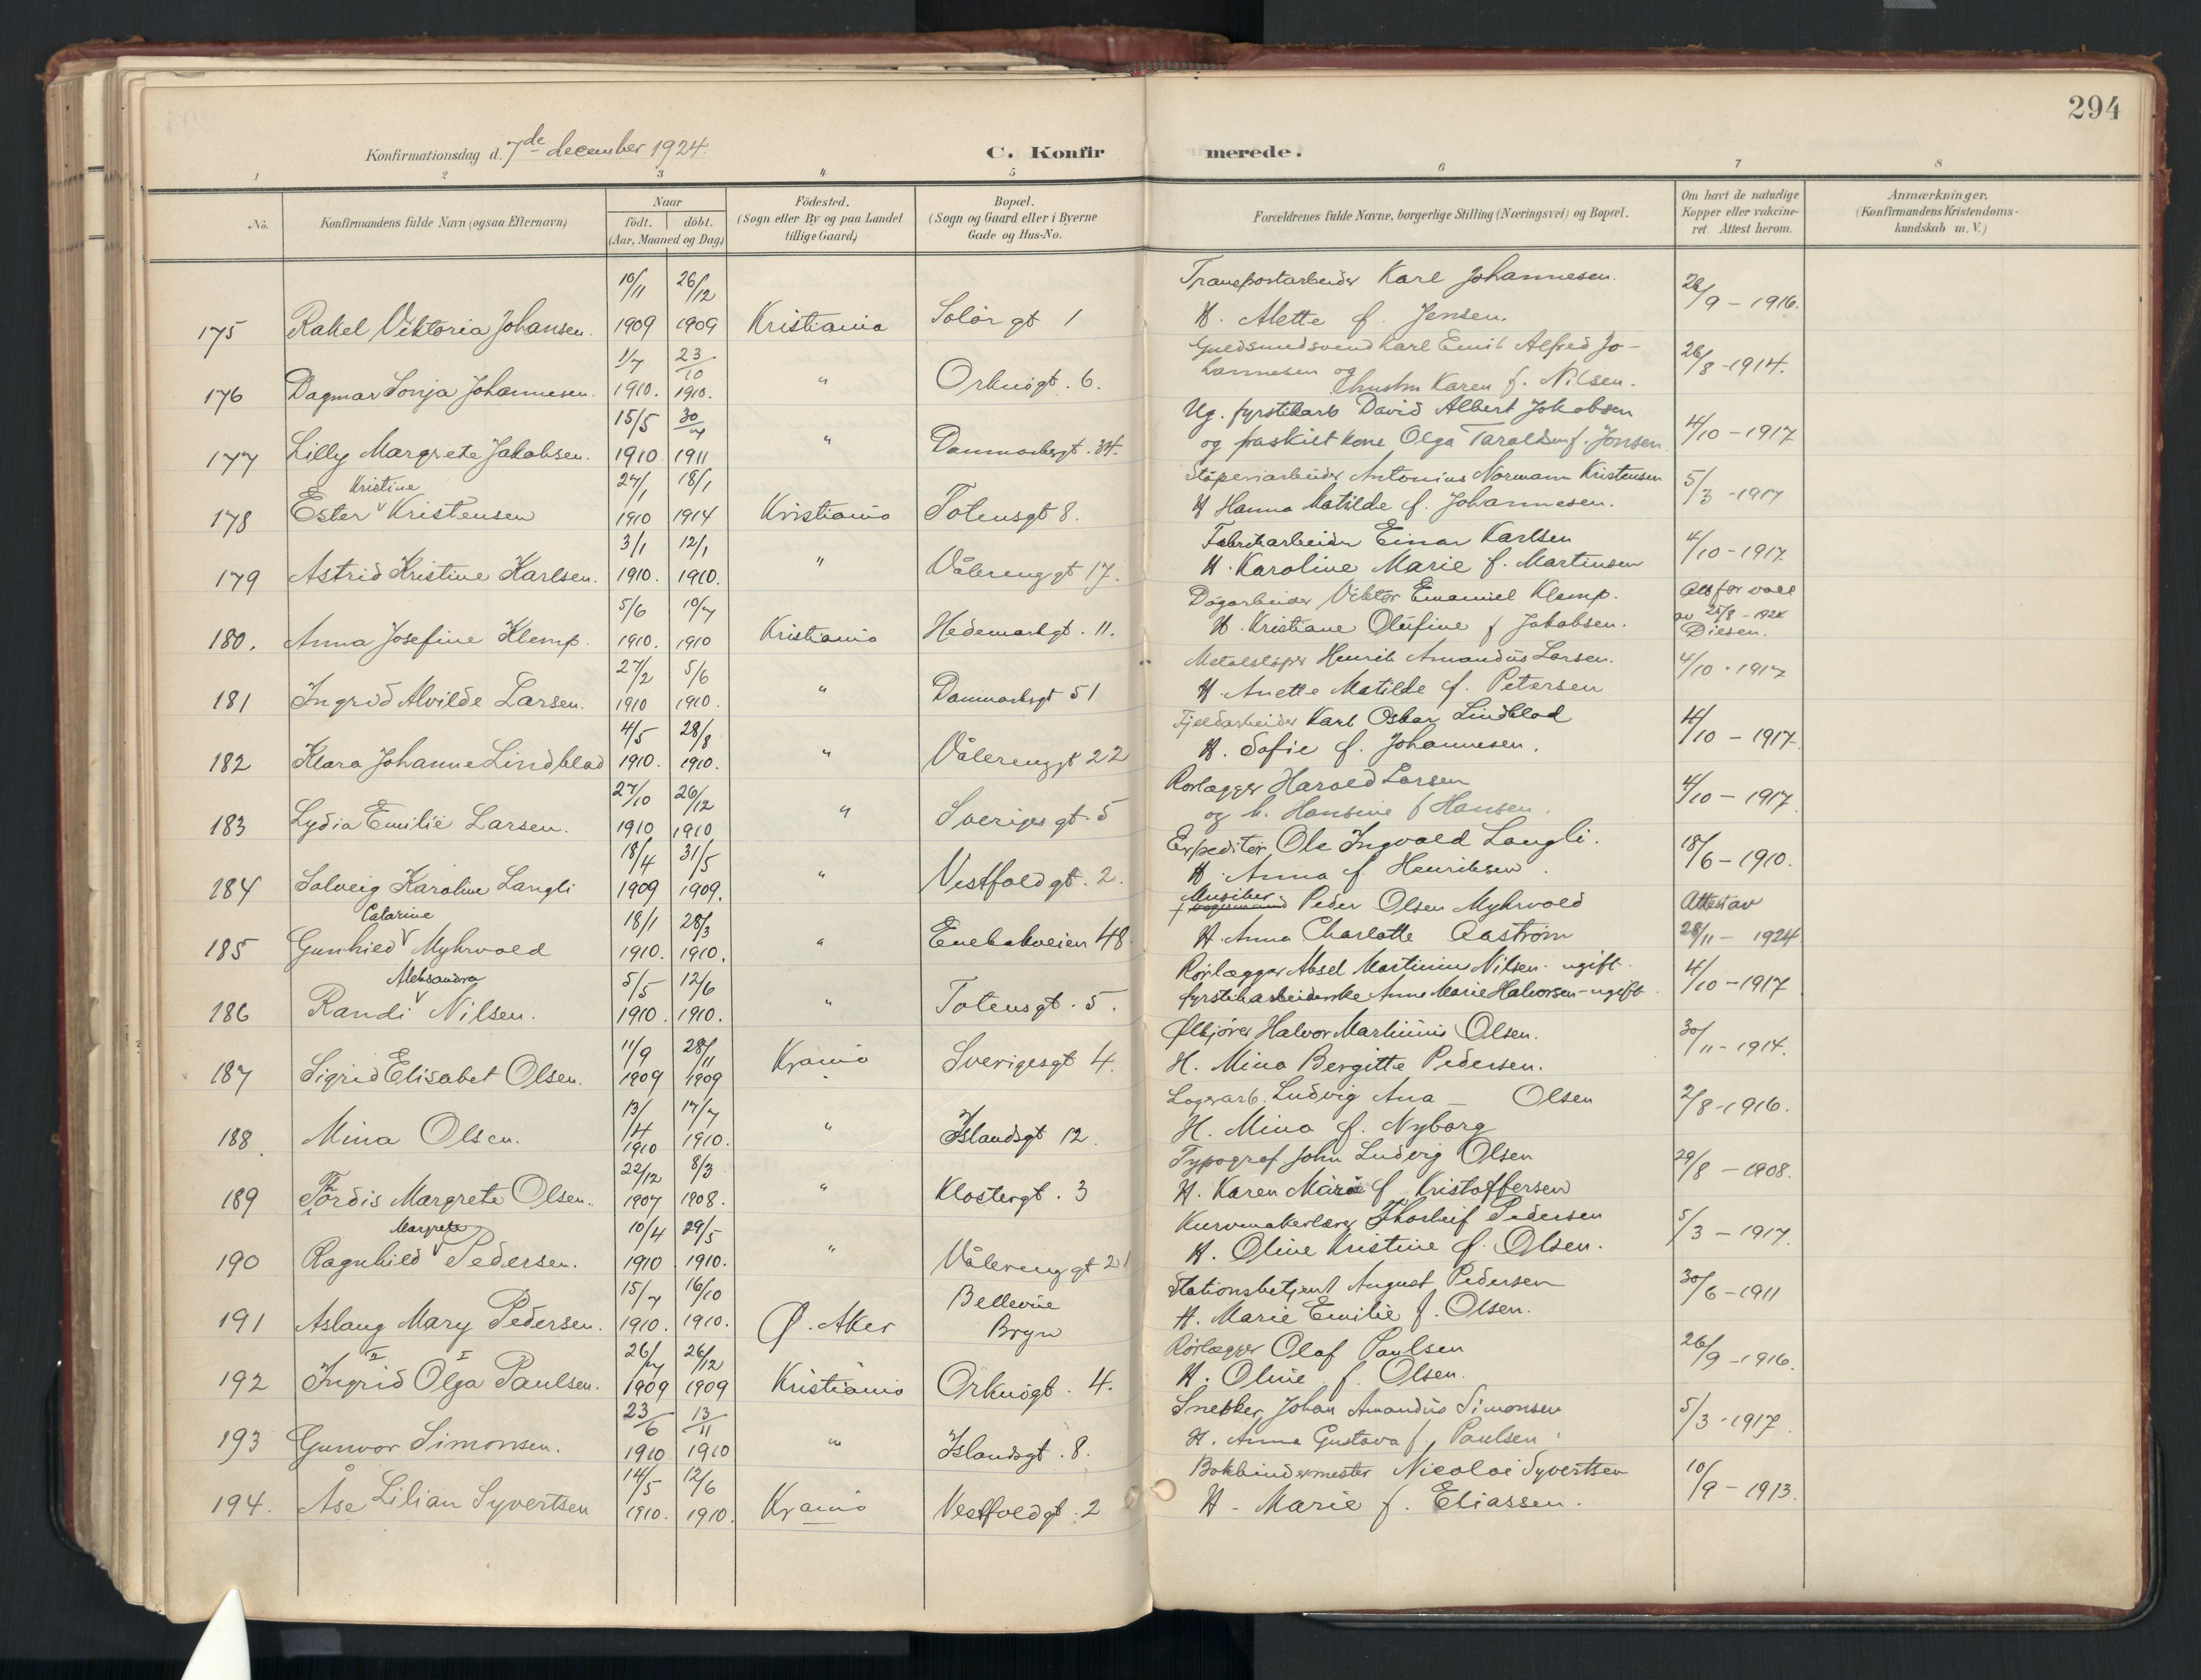 294
Konfirmationsdag d. 7de december 1924.
C. Konfirmerede.
1 2 3 4 5 6 7 8
No. Konfirmandens fulde Navn (ogsaa Efternavn) Naar født. døbt. (Aar, Maaned og Dag) Fødested. (Sogn eller By og paa Landet tillige Gaard) Bopæl. (Sogn og Gaard eller i Byerne Gade og Hus-No. Forældrenes fulde Navne, borgerlige Stilling (Næringsvei) og Bopæl. Om havt de naturlige Kopper eller vakcineret. Attest herom. Anmærkninger, (Konfirmandens Kristendomskundskab m. V.)
10/11 26/12 Transportarbeider Karl Johannesen.
175 Rakel Viktoria Johansen. 1909 1909 Kristiania Solør gt 1 H. Alette f. Jensen. 26/9 - 1916.
1/7 23/10 Guldsmedsvend Karl Emil Alfred Jo-
176 Dagmar Sonja Johannesen. 1910. 1910. " Orknøgt. 6. hannesen og hustru Karen f. Nilsen. 26/8 - 1914.
15/5 30/4 Ug. fyrstikarb David Albert Jakobsen
177 Lilly Margrete Jakobsen. 1910 1911 " Danmarksgt. 34. og fraskilt kone Olga Taraldsen f. Jonsen 4/10 - 1917
Kristine 27/1 18/1 Støperiarbeider Antonius Normann Kristensen
178 Ester v Kristensen 1910 1914 Kristiania Totensgt 8. H Hanna Matilde f. Johannesen. 5/3 - 1917
3/1 12/1 Fabrikarbeider Einar Karlsen
179 Astrid Kristine Karlsen. 1910. 1910. " Vålerenggt 17. H. Karoline Marie f. Martinsen 4/10 - 1917.
5/6 10/7 Dagarbeider Viktor Emanuel Klemp. Att for vacc
180. Anna Josefine Klemp. 1910. 1910 Kristiania Hedemarkgt. 11. H. Kristiane Olufine f Jakobsen. av 25/8 - 1924 Diesen.
27/2 5/6 Metalstøper Henrik Amandus Larsen.
181 Ingrid Alvilde Larsen. 1910 1910. " Danmarksgt 51 H. Anette Matilde f. Petersen 4/10 - 1917
4/5 28/8 Fjeldarbeider Karl Oskar Lindblad
182 Klara Johanne Lindblad 1910. 1910. " Vålerenggt 22 H. Sofie f. Johannesen. 4/10 - 1917.
27/10 26/12 Rørlægger Harald Larsen
183 Lydia Emilie Larsen. 1910 1910 " Sveriges gt. 5 og h. Hansine f Hansen. 4/10 - 1917.
18/4 31/5 Expeditør Ole Ingvald Langli.
184 Solveig Karoline Langli 1909 1909. " Vestfoldgt. 2. H. Anna f Henriksen. 18/6 - 1910.
Catarine 18/1 28/3 Musiker Peder Olsen Myhrvold Attest av
185 Gunhild v Myhrvold 1910. 1910. " Enebakveien 48 H. Anna Charlotte Aaström 28/11 - 1924
Aleksandra 5/5 12/6 Rørlægger Aksel Martinius Nilsen - ugift.
186 Randi v Nilsen. 1910. 1910. " Totensgt. 5. fyrstikarbeiderske Anna Marie Halvorsen - ugift. 4/10 - 1917
11/9 28/11 Ølkjører Halvor Martinius Olsen.
187 Sigrid Elisabet Olsen. 1909 1909 Kr.ania Sverigesgt 4. H. Mina Bergitte Pedersen. 30/11 - 1914.
13/4 17/7 Lagerarb. Ludvig Ana — Olsen
188. Mina Olsen. 1910 1910. " Islandsgt 12. H. Mina f. Nyborg 2/8 - 1916.
22/12 8/3 Typograf John Ludvig Olsen
189 Thordis Margrete Olsen. 1907 1908. " Klostergt. 3 H. Karen Marie f. Kristoffersen 29/8 - 1908.
Margrete 10/4 29/5 Kurvmakerlærer Thorleif Pedersen
190 Ragnhild v Pedersen. 1910 1910. " Vålerenggt 21 H. Oline Kristine f. Olsen. 5/3 - 1917.
15/7 16/10 Bellevue Stationsbetjent August Pedersen
191 Aslaug Mary Pedersen. 1910. 1910. Ø. Aker Bryn H. Marie Emilie f. Olsen. 30/6 - 1911
II I 26/7 26/12 Rørlægger Olaf Paulsen
192 Ingrid Olga Paulsen. 1909 1909 Kristiania Orknøgt. 4. H. Oline f. Olsen. 26/9 - 1916.
23/6 13/11 Snekker Johan Amandus Simonsen
193 Gunvor Simonsen. 1910 1910 " Islandsgt. 8. H. Anna Gustava f. Paulsen. 5/3 - 1917.
14/5 12/6 Bokbindermester Nicolai Syvertsen
194. Åse Lilian Syvertsen 1910. 1910. Kr.ania Vestfoldgt. 2 H - Marie f. Eliassen. 10/9 - 1913.